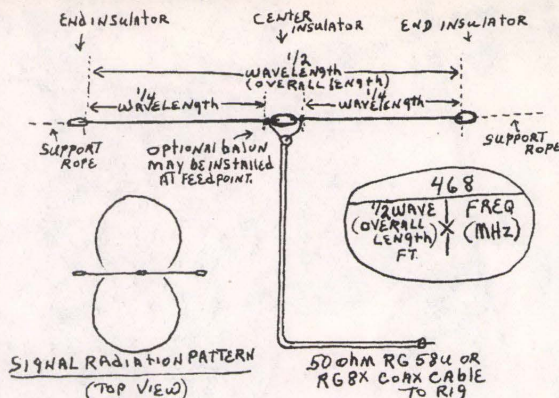 END INSULATOR
CENTER INSULATOR
END INSULATOR
1/2
WAVELENGTH
(OVERALL LENGTH)
1/4
WAVELENGTH
1/4
WAVELENGTH
SUPPORT
ROPE
OPTIONAL BALUN
MAY BE INSTALLED
AT FEEDPOINT.
SUPPORT
ROPE
468
1/2 WAVE
(OVERALL
LENGTH)
FT.
X
FREQ
(MHz)
SIGNAL RADIATION PATTERN
(TOP VIEW)
50 ohm RG 58U OR
RG8X COAX CABLE
TO RIG